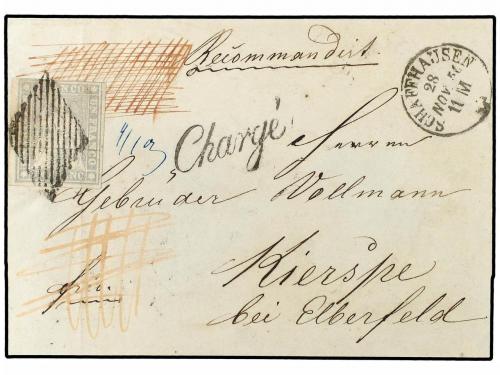 Recommandirt.
SCHAFFHAUSEN
28
NOV 56
11 M
Chargé
Herren
Gebrüder Vollmann
Kierspe
bei Elberfeld